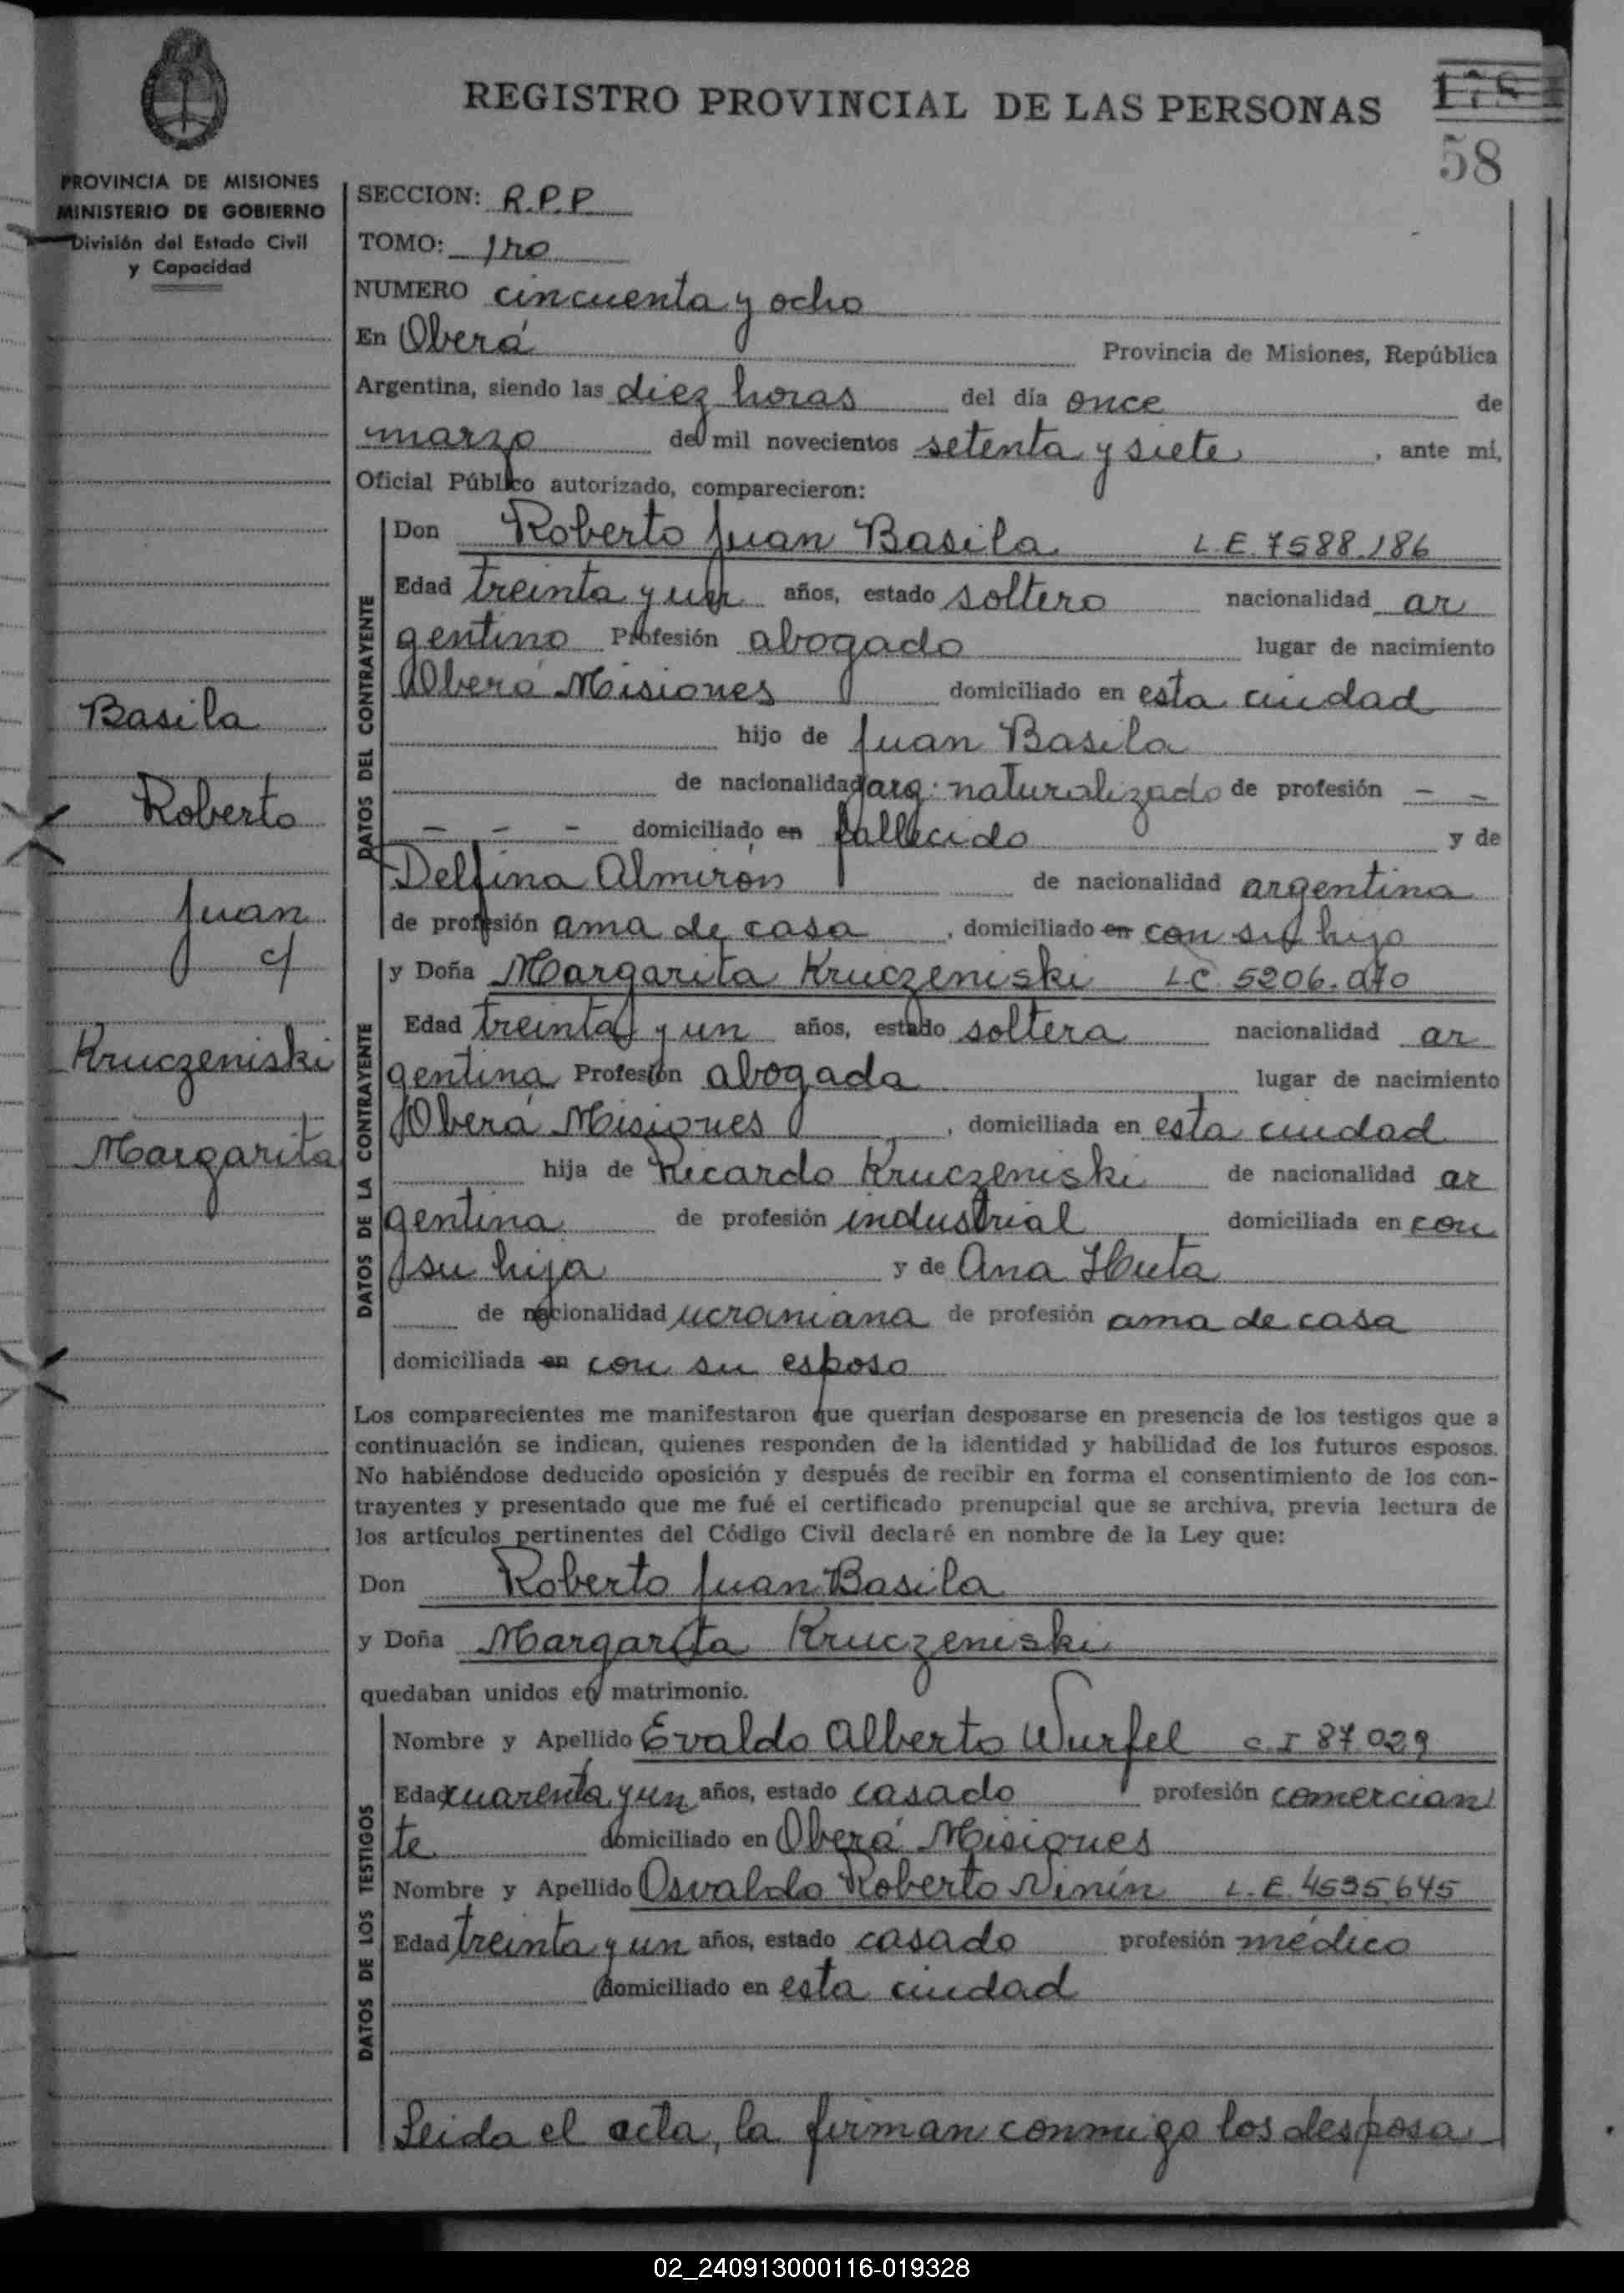 REGISTRO PROVINCIAL DE LAS PERSONAS
58
PROVINCIA DE MISIONES
MINISTERIO DE GOBIERNO
División del Estado Civil
y Capacidad
SECCION: R.P.P
TOMO: 1ro
NUMERO cincuenta y ocho
En Oberá Provincia de Misiones, República
Argentina, siendo las diez horas del día once de
marzo de mil novecientos setenta y siete, ante mi,
Oficial Público autorizado, comparecieron:
DATOS DEL CONTRAYENTE
Don Roberto Juan Basila L.E. 7588.186
Edad treinta y un años, estado soltero nacionalidad ar
gentino Profesión abogado lugar de nacimiento
Oberá Misiones domiciliado en esta ciudad
hijo de Juan Basila
de nacionalidad arg. naturalizado de profesión - -
- - - domiciliado en fallecido y de
Delfina Almirón de nacionalidad argentina
de profesión ama de casa, domiciliado en con su hijo
Basila
Roberto
Juan
c/
Kruczeniski
Margarita
DATOS DE LA CONTRAYENTE
y Doña Margarita Kruczeniski L.C 5206.070
Edad treinta y un años, estado soltera nacionalidad ar
gentina Profesión abogada lugar de nacimiento
Oberá Misiones, domiciliada en esta ciudad
hija de Ricardo Kruczeniski de nacionalidad ar
gentina de profesión industrial domiciliada en con
su hija y de Ana Huta
de nacionalidad ucraniana de profesión ama de casa
domiciliada en con su esposo
Los comparecientes me manifestaron que querían desposarse en presencia de los testigos que a
continuación se indican, quienes responden de la identidad y habilidad de los futuros esposos.
No habiéndose deducido oposición y después de recibir en forma el consentimiento de los con-
trayentes y presentado que me fué el certificado prenupcial que se archiva, previa lectura de
los artículos pertinentes del Código Civil declaré en nombre de la Ley que:
Don Roberto Juan Basila
y Doña Margarita Kruczeniski
quedaban unidos en matrimonio.
DATOS DE LOS TESTIGOS
Nombre y Apellido Evaldo Alberto Wurfel C.I 87.029
Edad cuarenta y un años, estado casado profesión comercian
te domiciliado en Oberá Misiones
Nombre y Apellido Osvaldo Roberto Ninín L.E. 4535.645
Edad treinta y un años, estado casado profesión médico
domiciliado en esta ciudad
Leida el acta, la firman conmigo los desposa
02_240913000116-019328